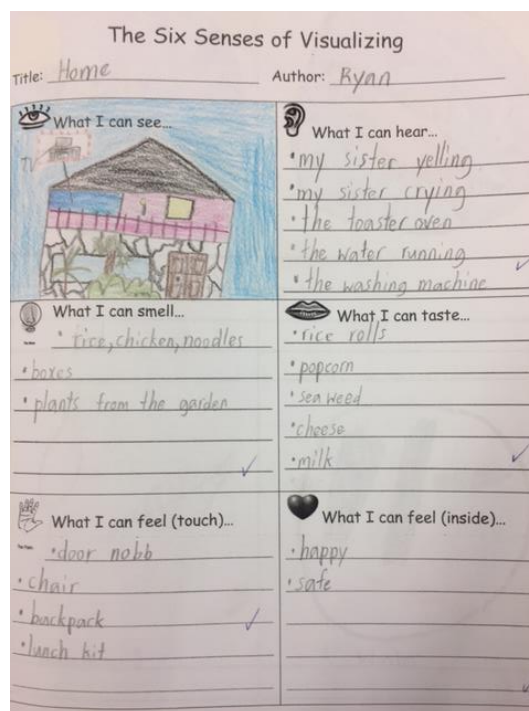 The Six Senses of Visualizing
Title: Home Author: Ryan
What I can see...
TV
What I can hear...
• my sister yelling
• my sister crying
• the toaster oven
• the water running
• the washing machine
What I can smell...
• rice, chicken, noodles
• boxes
• plants from the garden
What I can taste...
• rice rolls
• popcorn
• sea weed
• cheese
• milk
What I can feel (touch)...
• door nobb
• chair
• backpack
• lunch kit
What I can feel (inside)...
• happy
• safe